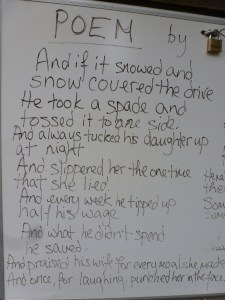 POEM by
And if it snowed and
snow covered the drive
He took a spade and
tossed it to one side.
And always tucked his daughter up
at night
And slippered her the one time
that she lied.
And every week he tipped up
half his wage
And what he didn't spend
he saved.
And praised his wife for every meal she made
And once, for laughing, punched her in the face.